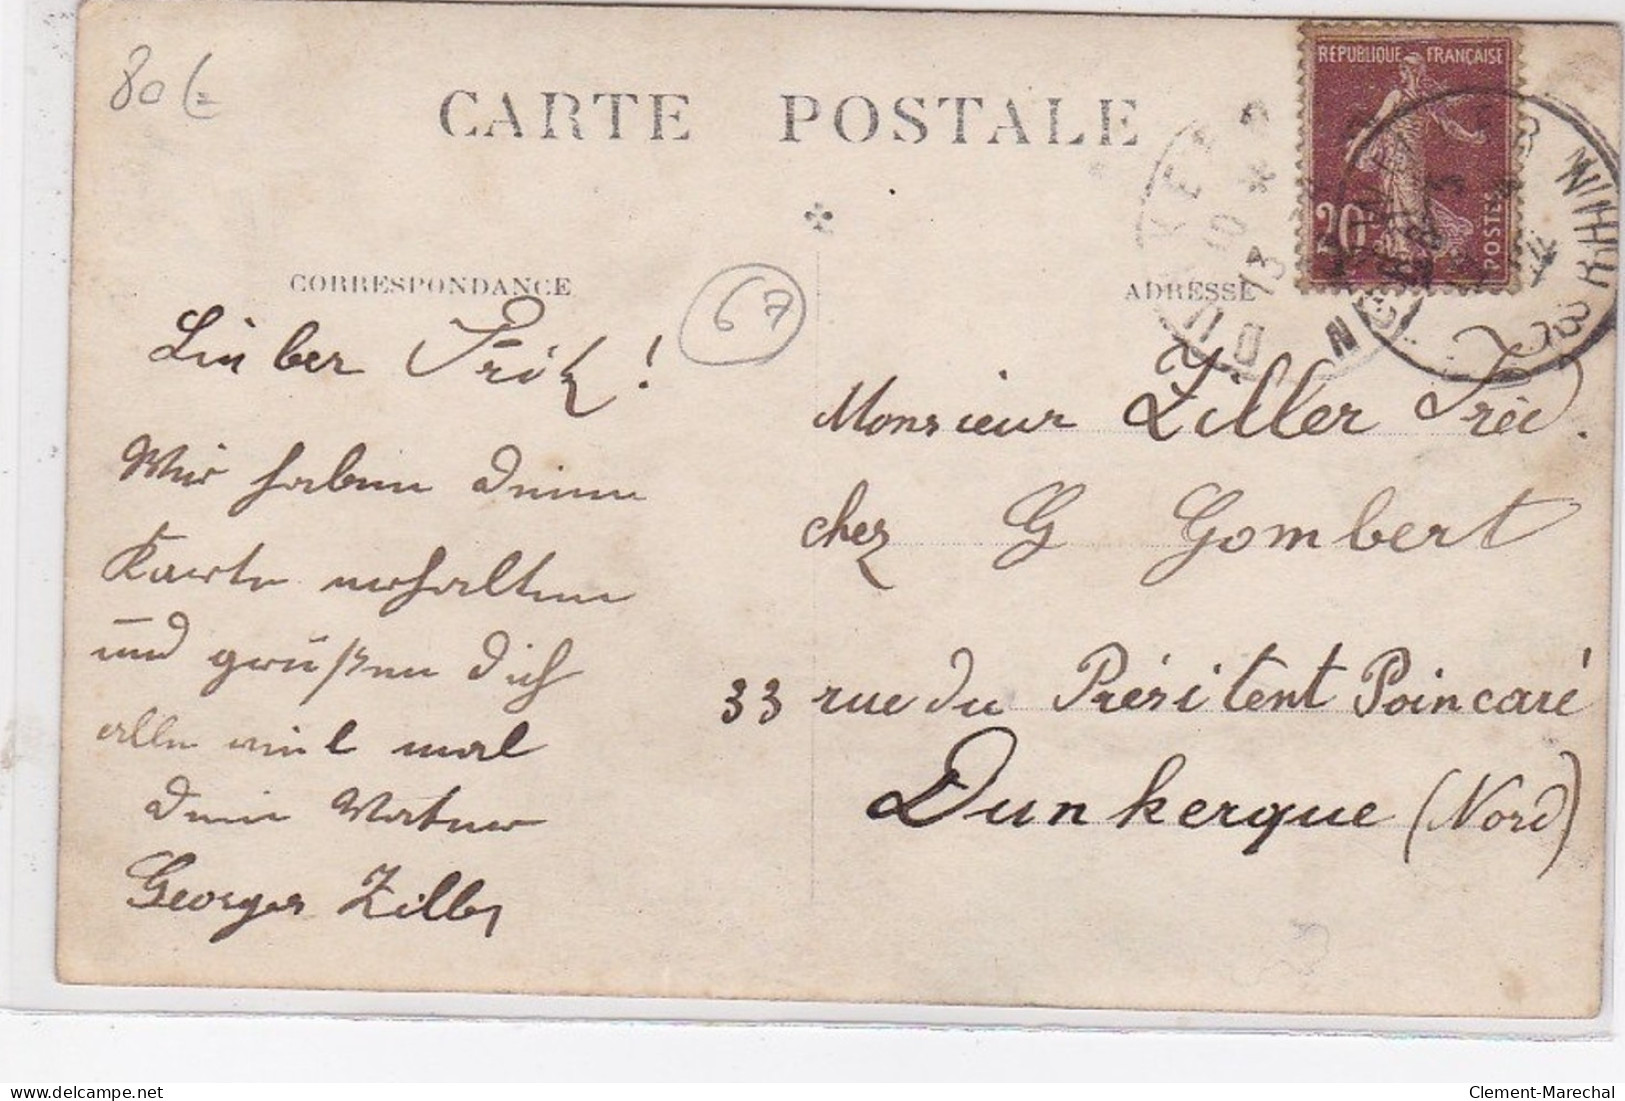 80 €
CARTE POSTALE
RÉPUBLIQUE FRANÇAISE
20c
POSTES
CORRESPONDANCE
ADRESSE
67
Lieber Fritz!
Wir haben Deine
Karte erhalten
und grüßen Dich
alle viel mal
Dein Vater
Georges Ziller
Monsieur Ziller Fréd.
chez G Gombert
33 rue du Présitent Poincaré
Dunkerque (Nord)
Clement-Marechal